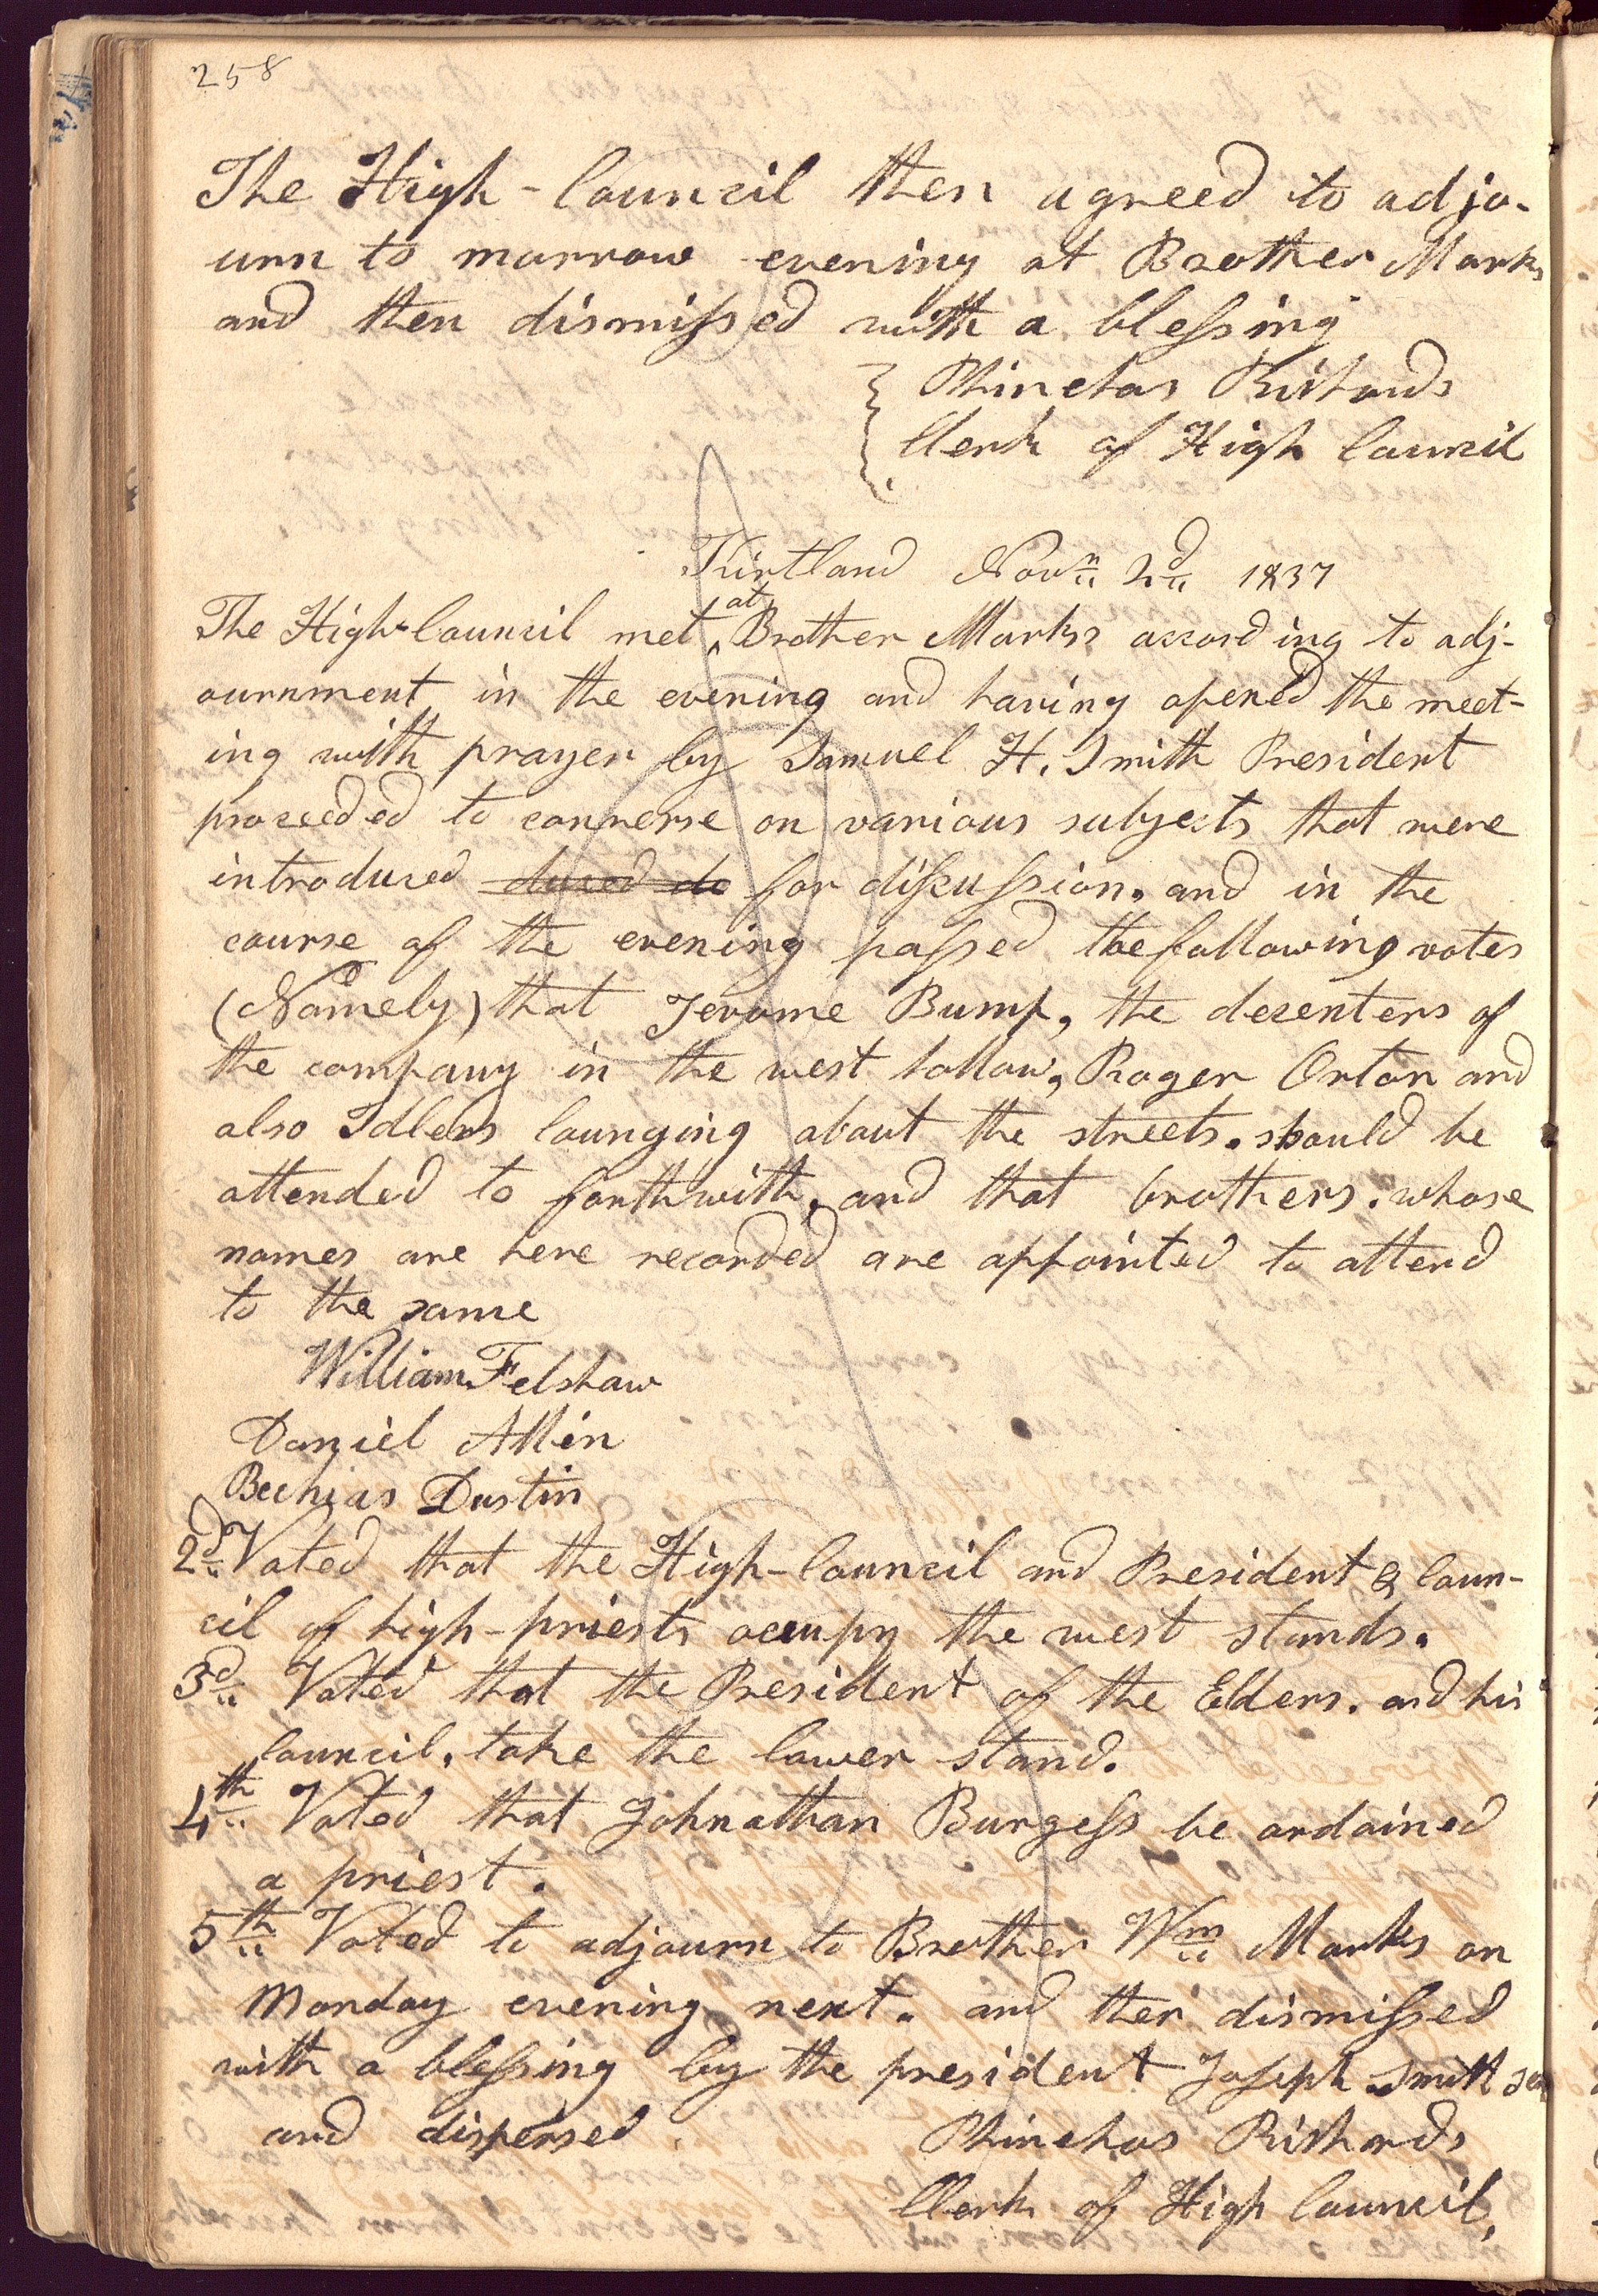 258
The High-Council then agreed to adjo-
urn to morrow evening at Brother Marks
and then dismissed with a blessing
Phinehas Richards
Clerk of High Council
Kirtland Novn 2d 1837
The High-Council met at Brother Marks's according to adj-
ournment in the evening and having opened the meet-
ing with prayer by Samuel H. Smith President
proceeded to converse on various subjects that were
introduced duced de for discussion. and in the
course of the evening passed the following votes
(Namely) that Jerome Bump, the decenters of
the company in the west hollow, Roger Orton and
also Idlers lounging about the streets. should be
attended to forthwith, and that brothers. whose
names are here recorded are appointed to attend
to the same
William Felshaw
Daniel Allin
Bechias Dustin
2d Voted that the High-Council and President & Coun-
cil of high-priests occupy the west stands.
3d Voted that the President of the Elders. and his
Council. take the lower stand.
4th Voted that Johnathan Burgess be ordained
a priest.
5th Voted to adjourn to Brother Wm Marks on
Monday evening next. and then dismissed
with a blessing by the president Joseph Smith sen
and dispersed.
Phinehas Richards
Clerk of High Council,